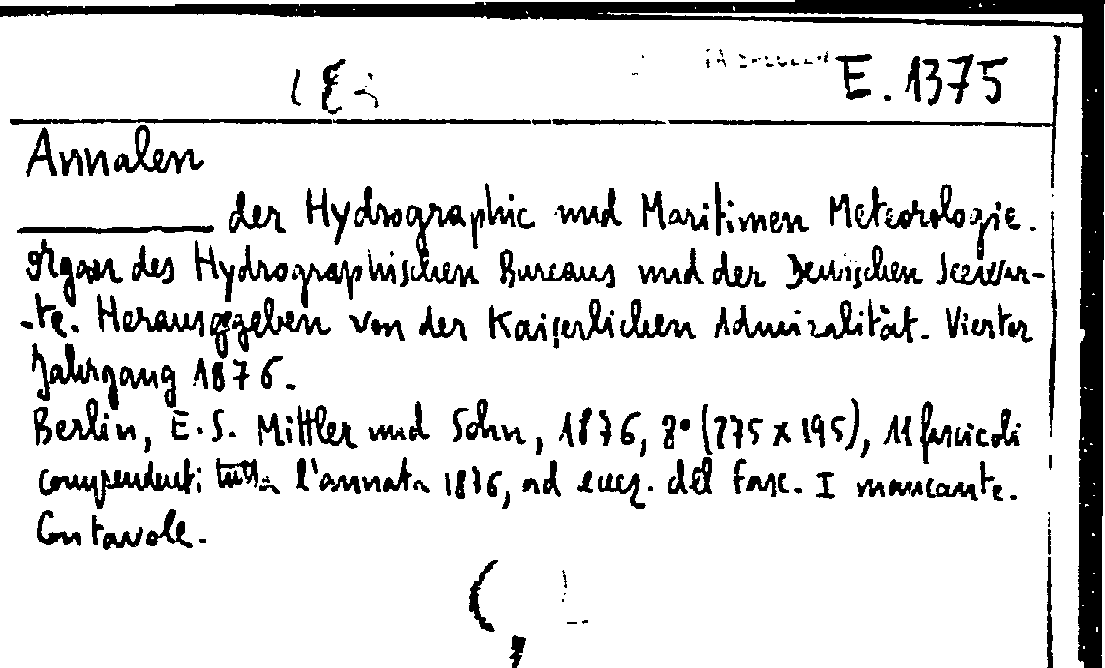 E. 1375
Annalen
der Hydrographie und Maritimen Meteorologie.
Organ des Hydrographischen Bureaus und der Deutschen Seewar-
-te. Herausgegeben von der Kaiserlichen Admiralität. Vierter
Jahrgang 1876.
Berlin, E.S. Mittler und Sohn, 1876, 8° (275 x 195), 11 fascicoli
comprendenti tutta l'annata 1876, ad ecez. del Fasc. I mancante.
Con tavole.